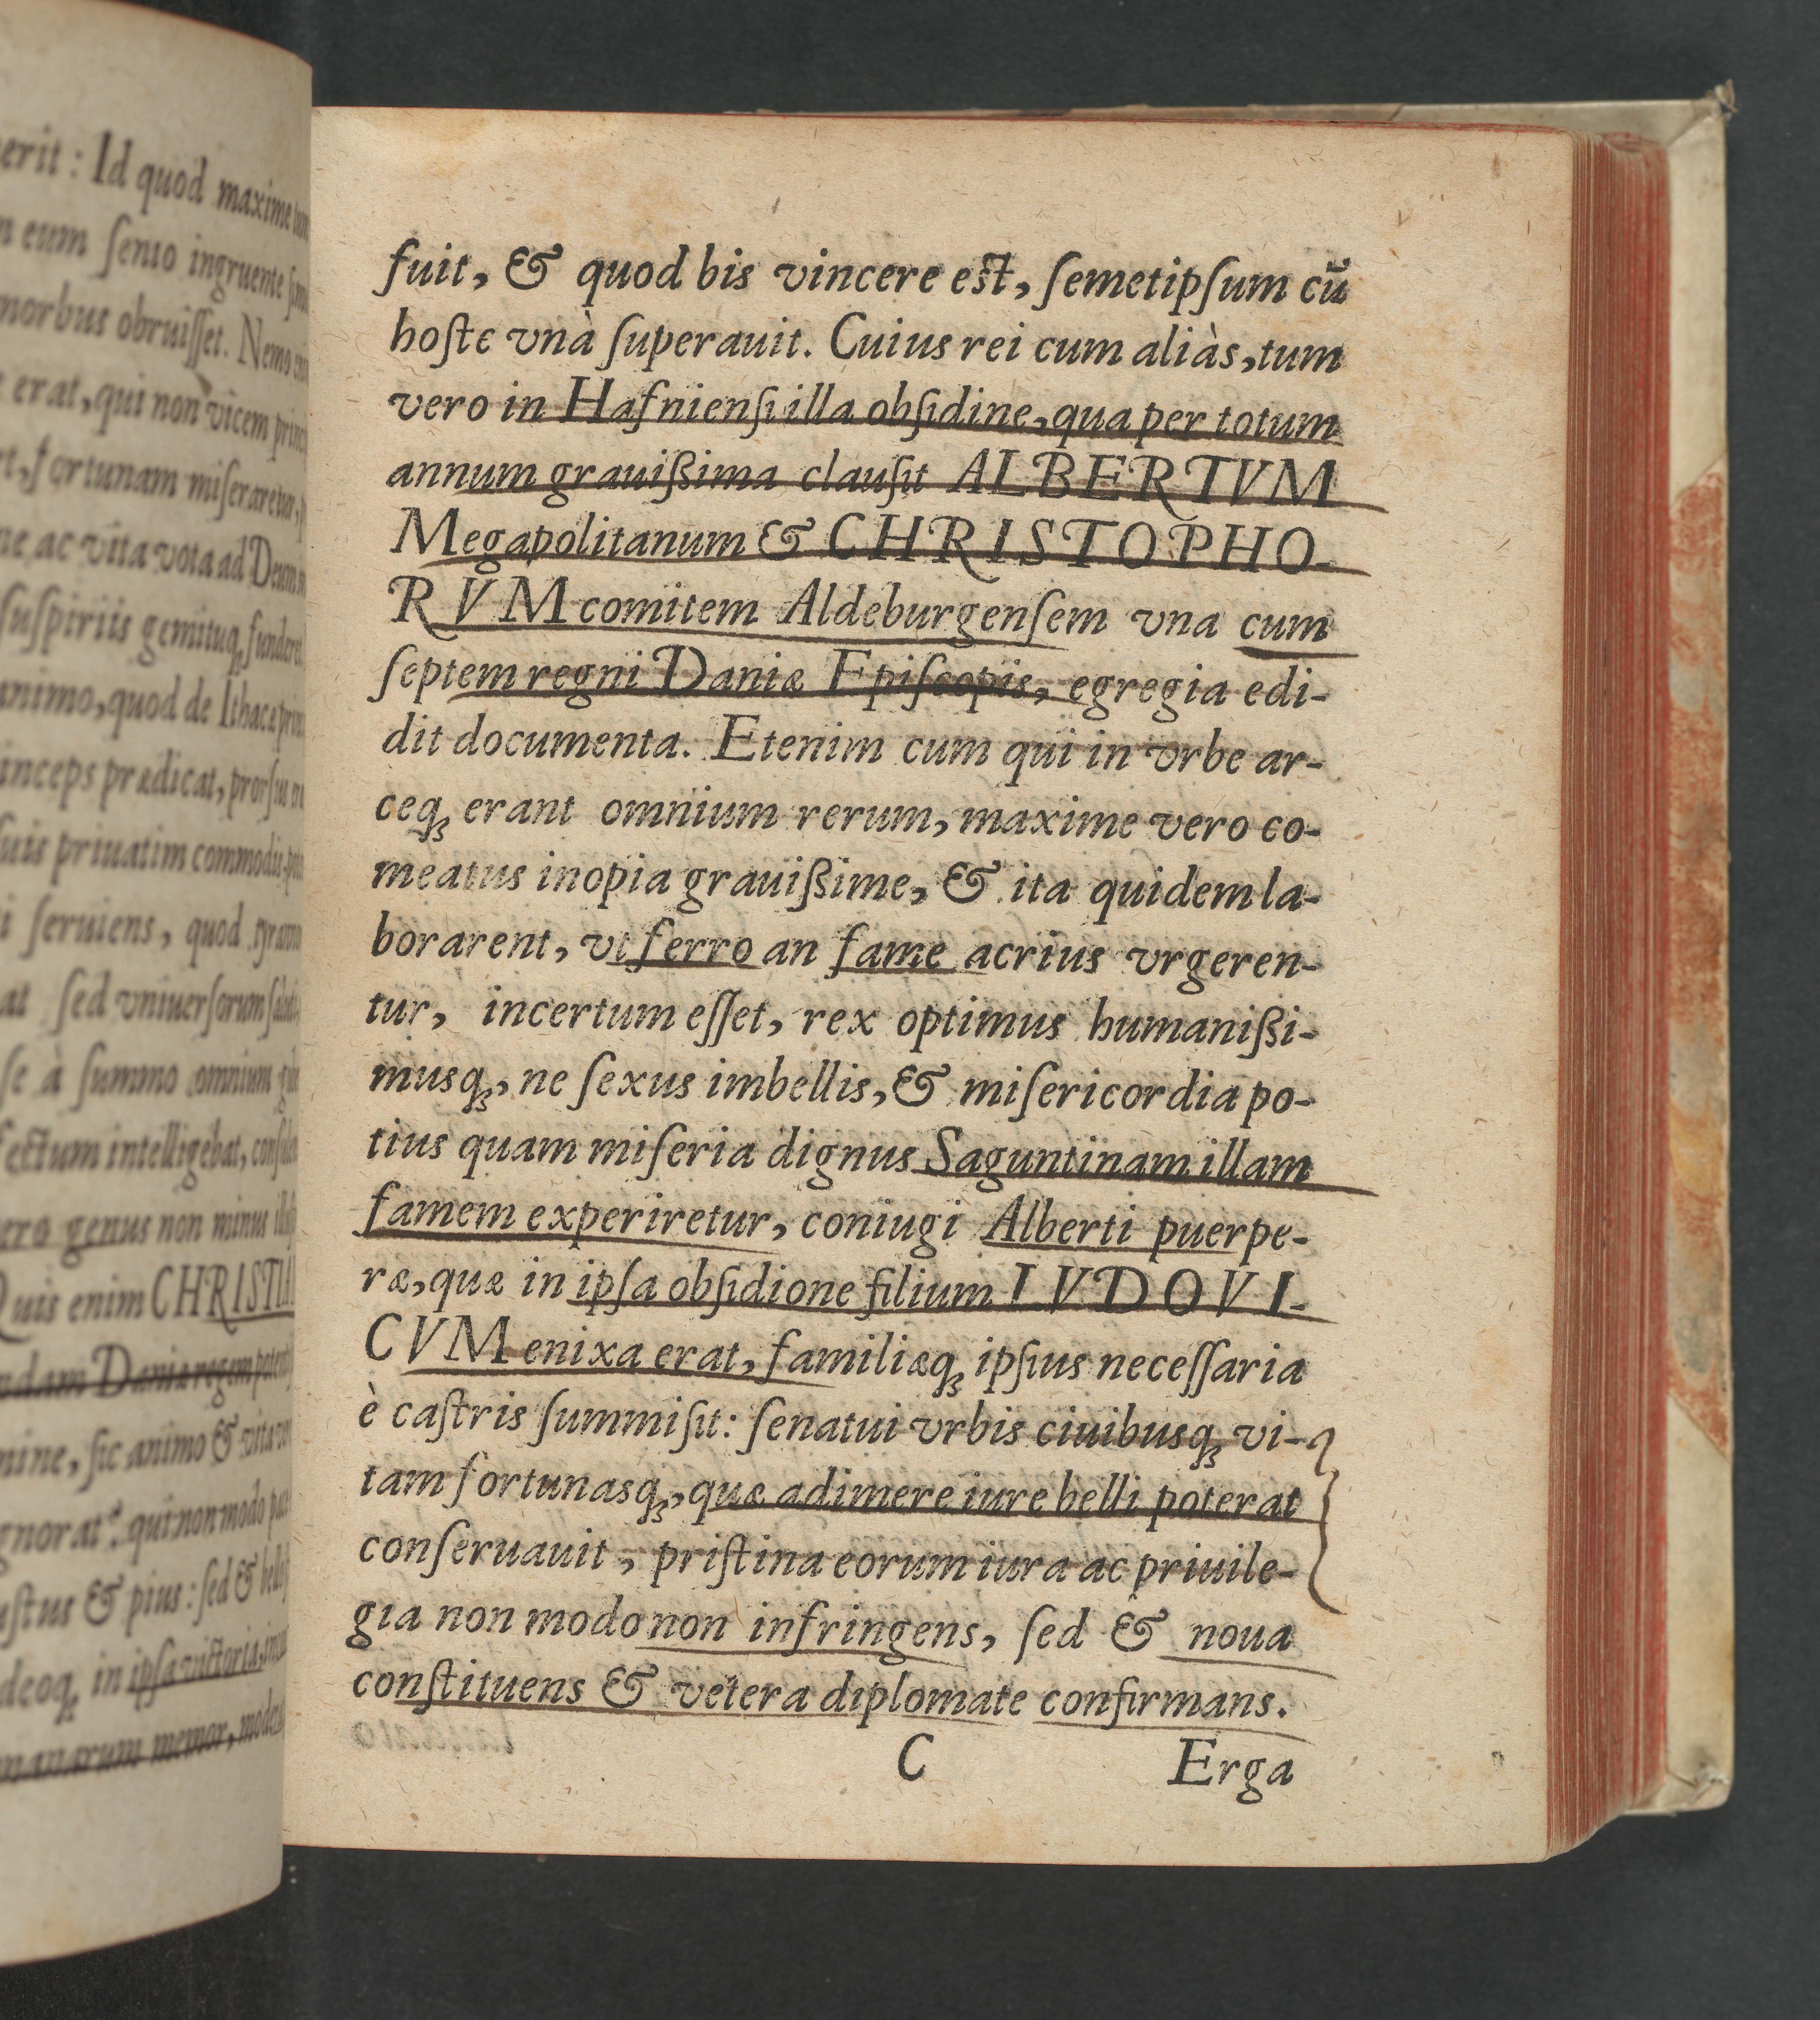 erit: Id quod maxime tum
eum ſenio ingruente
morbus obruiſſet. Nemo
erat, qui non vicem
fortunam miſeraretur,
ac vita vota ad Deum
ſuſpiriis gemituq́ꝫ funderet
animo, quod de Ithacæ
inceps prædicat, prorſus
ſuis priuatim commodis
ſeruiens, quod tyranni
at ſed vniuerſorum
ſe à ſummo omnium
intelligebat,
genus non minus
Quis enim CHRISTIA
Daniæ regem
ſic animo & vita
qui non modo
& pius: ſed &
in ipſa victoria,
memor,
fuit, & quod bis vincere est, ſemetipſum cū
hoſte vnà ſuperauit. Cuius rei cum aliàs, tum
vero in Hafnienſi illa obſidine, qua per totum
annum grauißima clauſit ALBERTVM
Megapolitanum & CHRISTOPHO-
RVM comitem Aldeburgenſem vna cum
ſeptem regni Daniæ Epiſcopis, egregia edi-
dit documenta. Etenim cum qui in vrbe ar-
ceqꝫ erant omnium rerum, maxime vero co-
meatus inopia grauißime, & ita quidem la-
borarent, vt ferro an fame acrius vrgeren-
tur, incertum eſſet, rex optimus humanißi-
musqꝫ, ne ſexus imbellis, & miſericordia po-
tius quam miſeria dignus Saguntinam illam
famem experiretur, coniugi Alberti puerpe-
ræ, quæ in ipſa obſidione filium LVDOVI-
CVM enixa erat, familiæqꝫ ipſius neceſſaria
è caſtris ſummiſit: ſenatui vrbis ciuibusqꝫ vi-
tam fortunasqꝫ, quæ adimere iure belli poterat
conſeruauit, priſtina eorum iura ac priuile-
gia non modo non infringens, ſed & noua
conſtituens & vetera diplomate confirmans.
C Erga